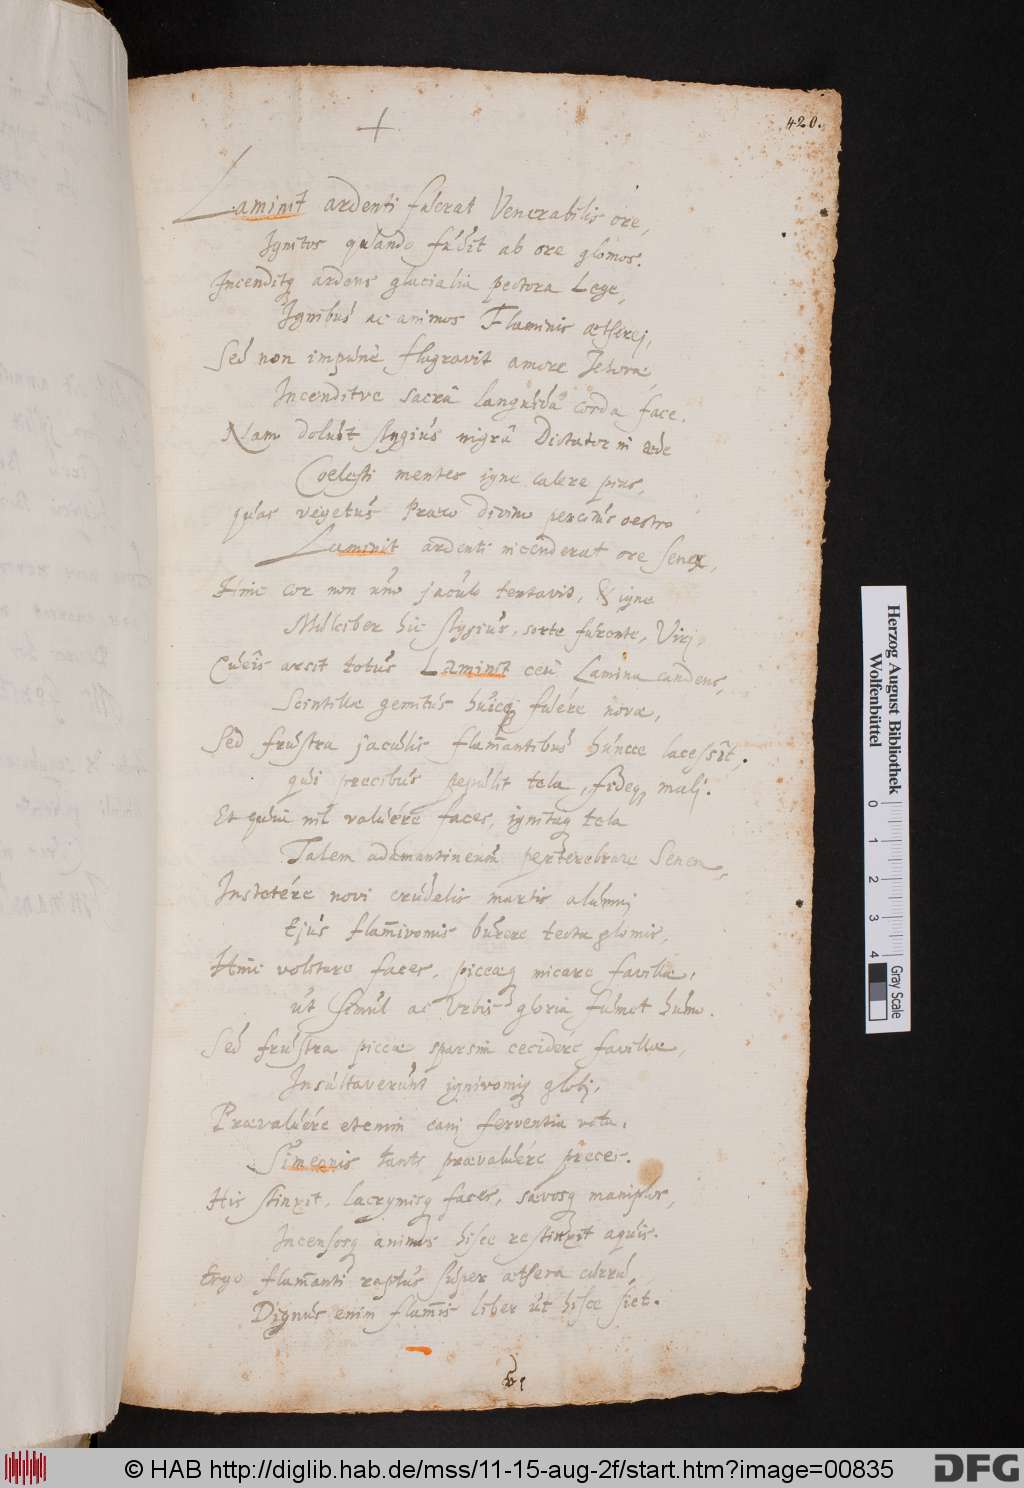 420.
Laminit ardenti fulserat Venerabilis ore,
Ignitos quando fudit ab ore glomos.
Incenditq ardens glacialia pectora Lege,
Ignibus ac animos Flaminis ætherej,
Sed non impunè flagravit amore Jehovæ,
Incenditve sacrâ languida corda face.
Nam doluit stygius nigrâ Dictator in æde
Coelesti mentes igne calere pias,
quas vegetus Præco divino percitus oestro
Laminit ardenti incenderat ore senex,
Hinc cor non uno jaculo tentavit, & igne
Mulciber hic stygius, sorte furente, Viri,
Cujus arsit totus Laminit ceu Lamina candens,
Scintillæ gemitus huicq fuére novæ,
Sed frustra jaculis flam̄antibus huncce lacessit,
qui precibus pepulit tela, fideq malj.
Et quia nil valuére faces, ignitaq tela
Talem adamantineum perterebrare Senem,
Institére novi crudelis martis alumnj
Ejus flam̄ivomis burere tecta glomis,
Hinc volitare faces, piceæq micare favillæ,
ut simul ac Urbis gloria fumet humo.
Sed frustra piceæ sparsim cecidére favillæ,
Insultaverunt ignivomiq globj,
Prævaluére etenim canj ferventia vota,
Simeonis tanti prævaluére preces.
His stinxit, lacrymisq faces, sævosq maniplos,
Incensosq animos hisce restinxit aquis.
Ergo flam̄anti raptus super æthera curru,
Dignus enim flam̄is liber ut hisce siet.
Herzog August Bibliothek
Wolfenbüttel
0 1 2 3 4
Gray Scale
© HAB http://diglib.hab.de/mss/11-15-aug-2f/start.htm?image=00835
DFG